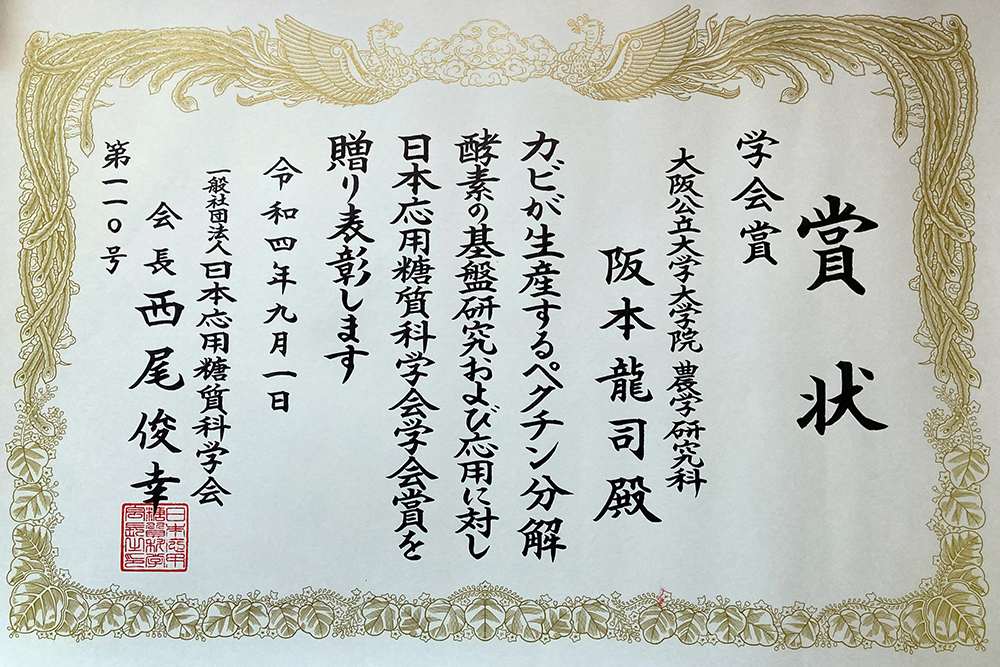 賞状
学会賞
大阪公立大学大学院 農学研究科
阪本龍司殿
カビが生産するペクチン分解
酵素の基盤研究および応用に対し
日本応用糖質科学会学会賞を
贈り表彰します
令和四年九月一日
一般社団法人日本応用糖質科学会
会長 西尾俊幸
第一一〇号
日本応用
糖質科学
会長之印